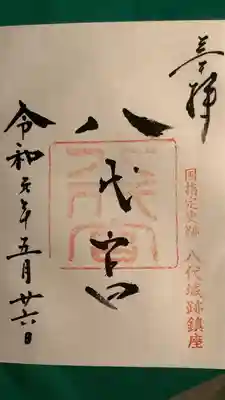 奉拝
国指定史跡 八代城跡鎮座
八代宮
令和元年五月廿六日